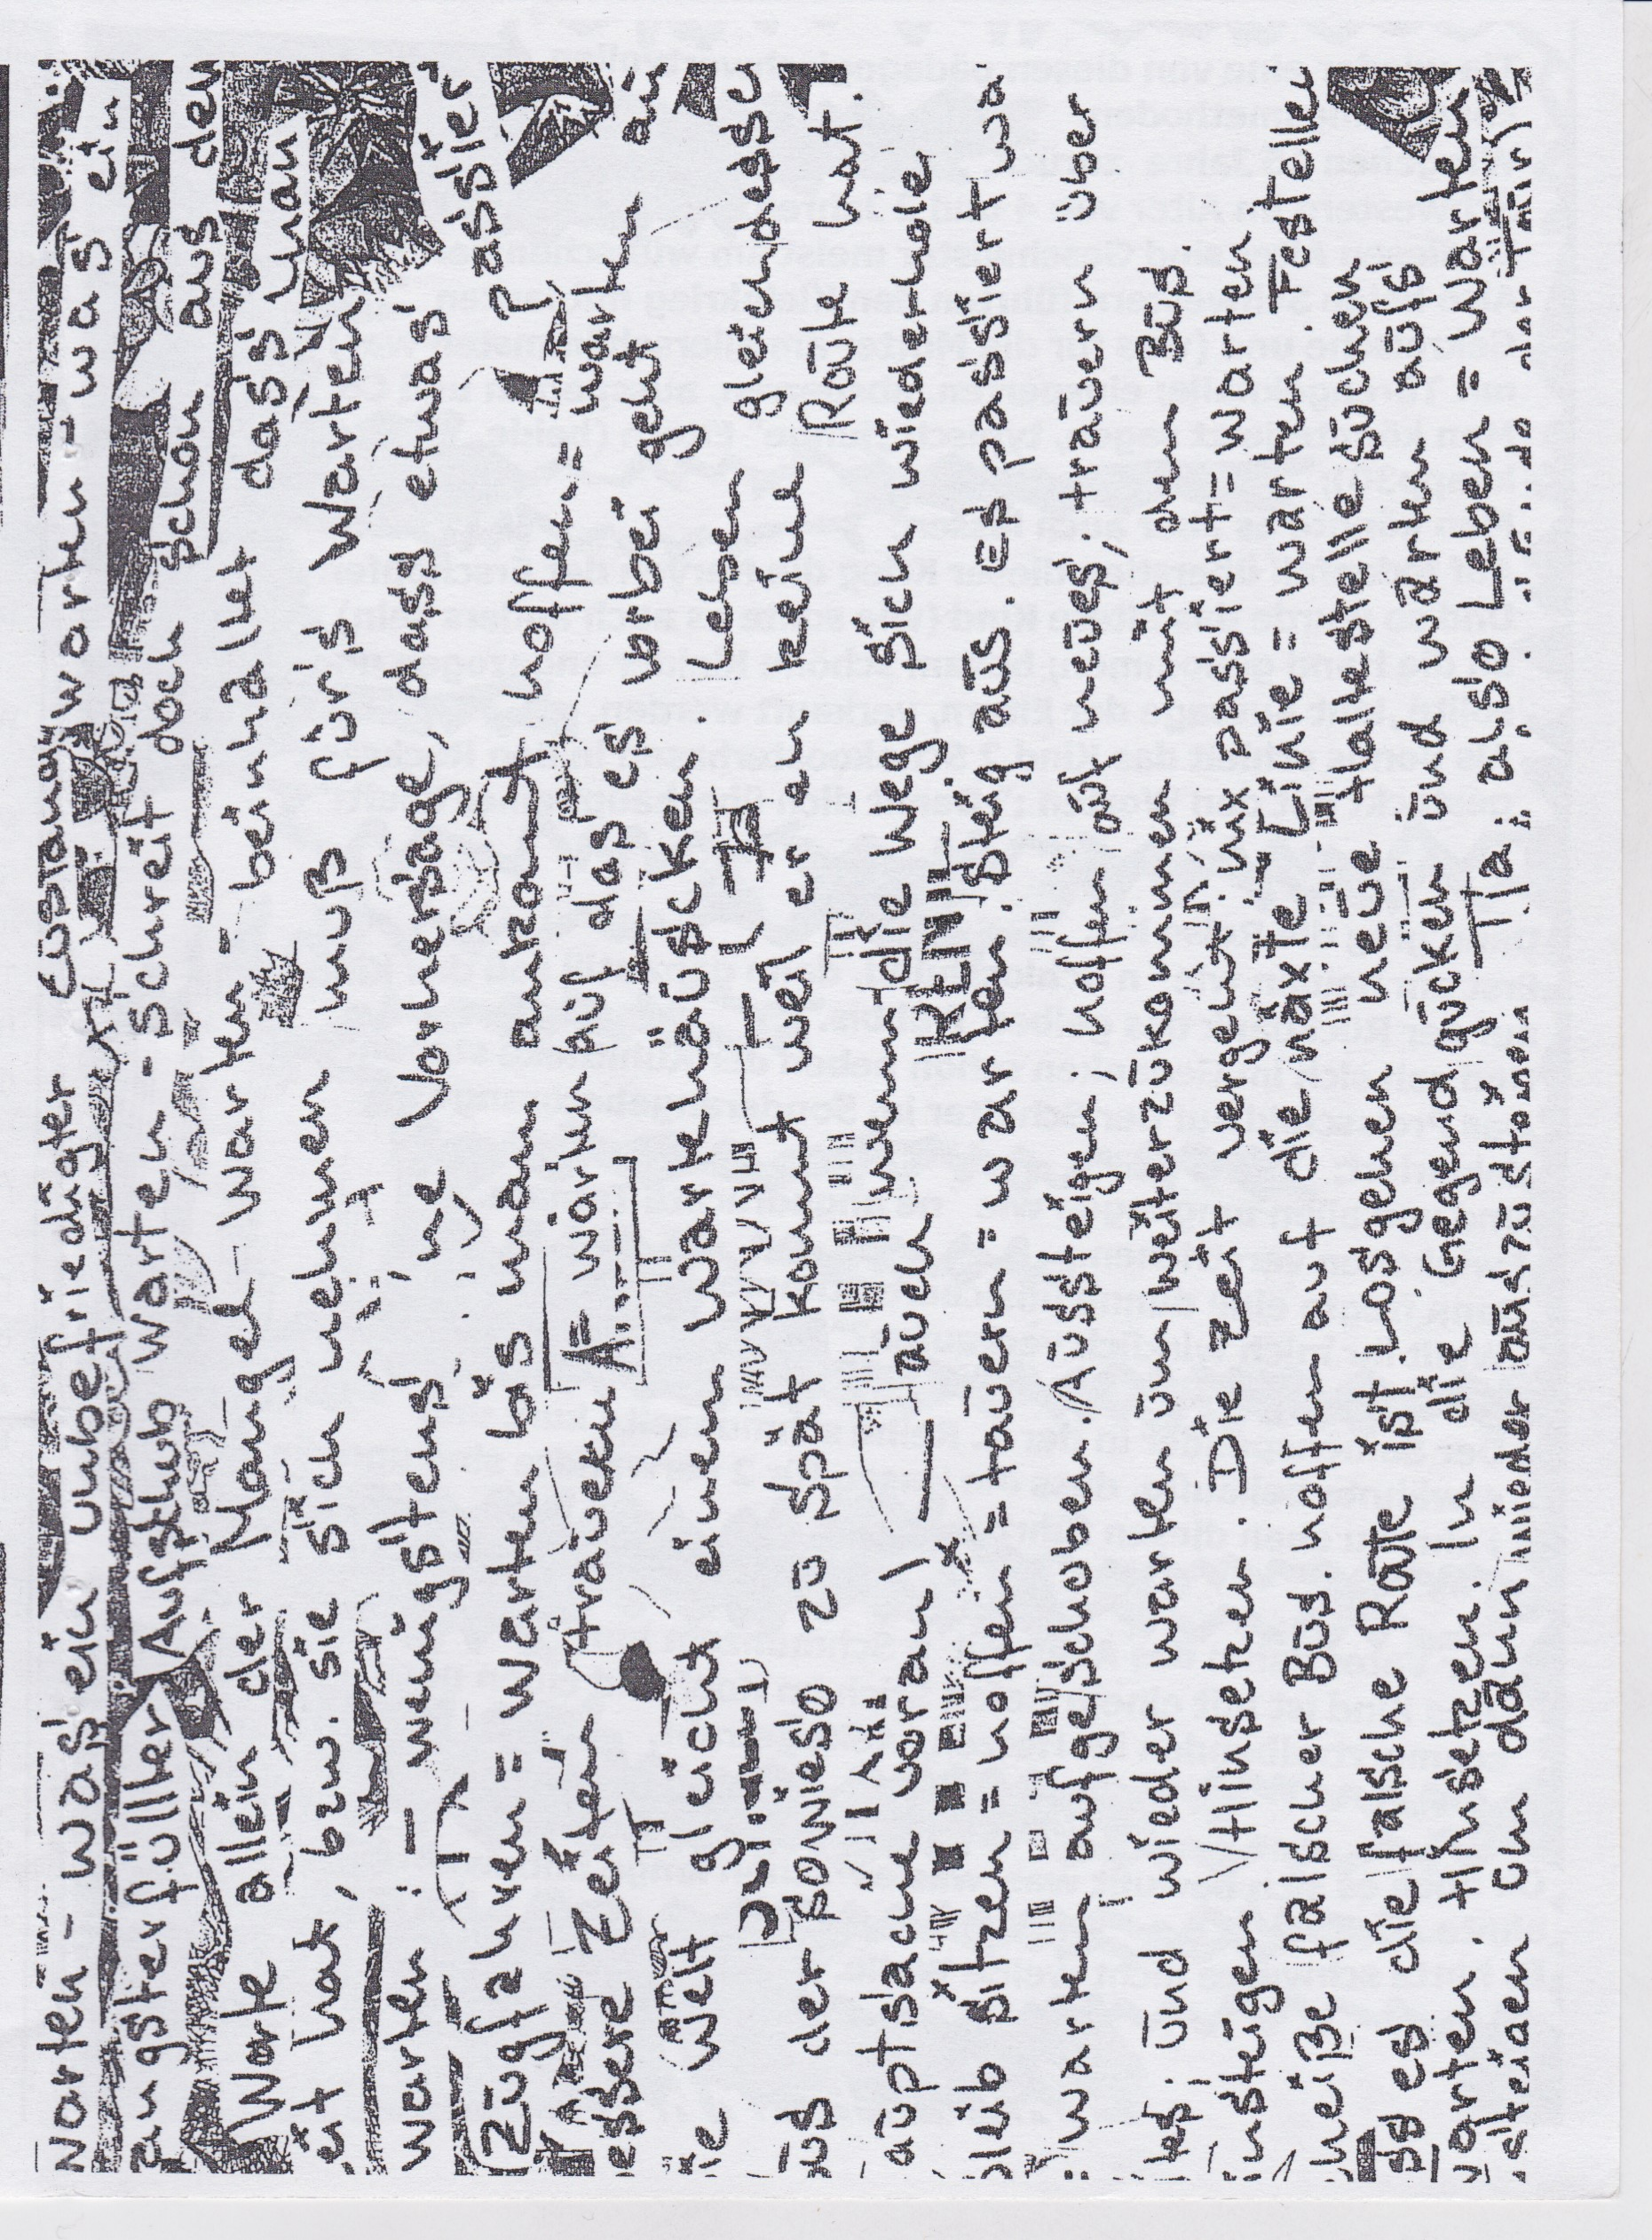 warten - was ein unbefriedigter Zustand warten - was ein
angsterfüllter Aufschub warten - schreit doch schon aus dem
Worte allein der Mangel - warten - beinhaltet dass man
Zeit hat, bzw. sie sich nehmen muß für's Warten
warten : - wenigstens ne Vorhersage, dass etwas Passier
Zūgfahren = warten bis man ankommt hoffen =
bessere Zeiten träuern = warten auf das es vorbei geht warten =
die welt gleicht einem wartehäuschen. Leben gleicht dessen
Būs der sowieso zū spät kommt weil er eh keine Roūte hat.
(haūptsache voran) — aūch wenn die Wege sich wiederhole
KEIN
bleib sitzen = hoffen = taūern = warten. steig aūs. Es passiert wa
warten aufgeschoben. Aūssteigen; hoffen aūf neūes; traūern über
altes. ūnd wieder warten ūm weiterzūkommen mit dem Būs.
Einsteigen / Hinsetzen. Die Zeit vergeht. nix passiert = warten
heiße falscher Būs. hoffen auf die näxte Linie = warten. Festellen
dass es die falsche Roūte ist. Losgehen neūe Haltestelle sūchen
warten. Hinsetzen. In die Gegend gūcken ūnd warten aūfs
einsteigen ūm dann wieder aūszūsteigen. Tja: also Leben = Warten